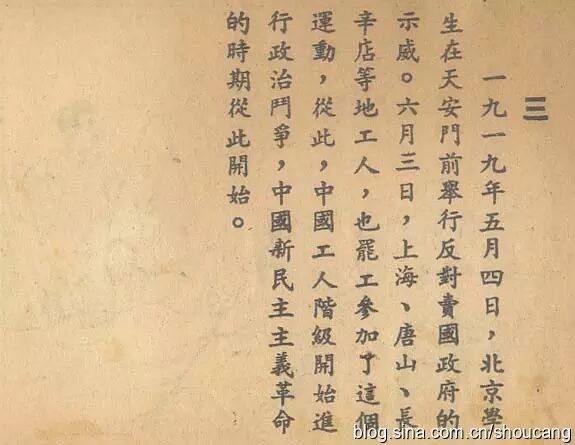 三
一九一九年五月四日，北京學
生在天安門前舉行反對賣國政府的
示威。六月三日，上海、唐山、長
辛店等地工人，也罷工參加了這個
運動，從此，中國工人階級開始進
行政治鬥爭，中國新民主主義革命
的時期從此開始。
blog.sina.com.cn/shoucang